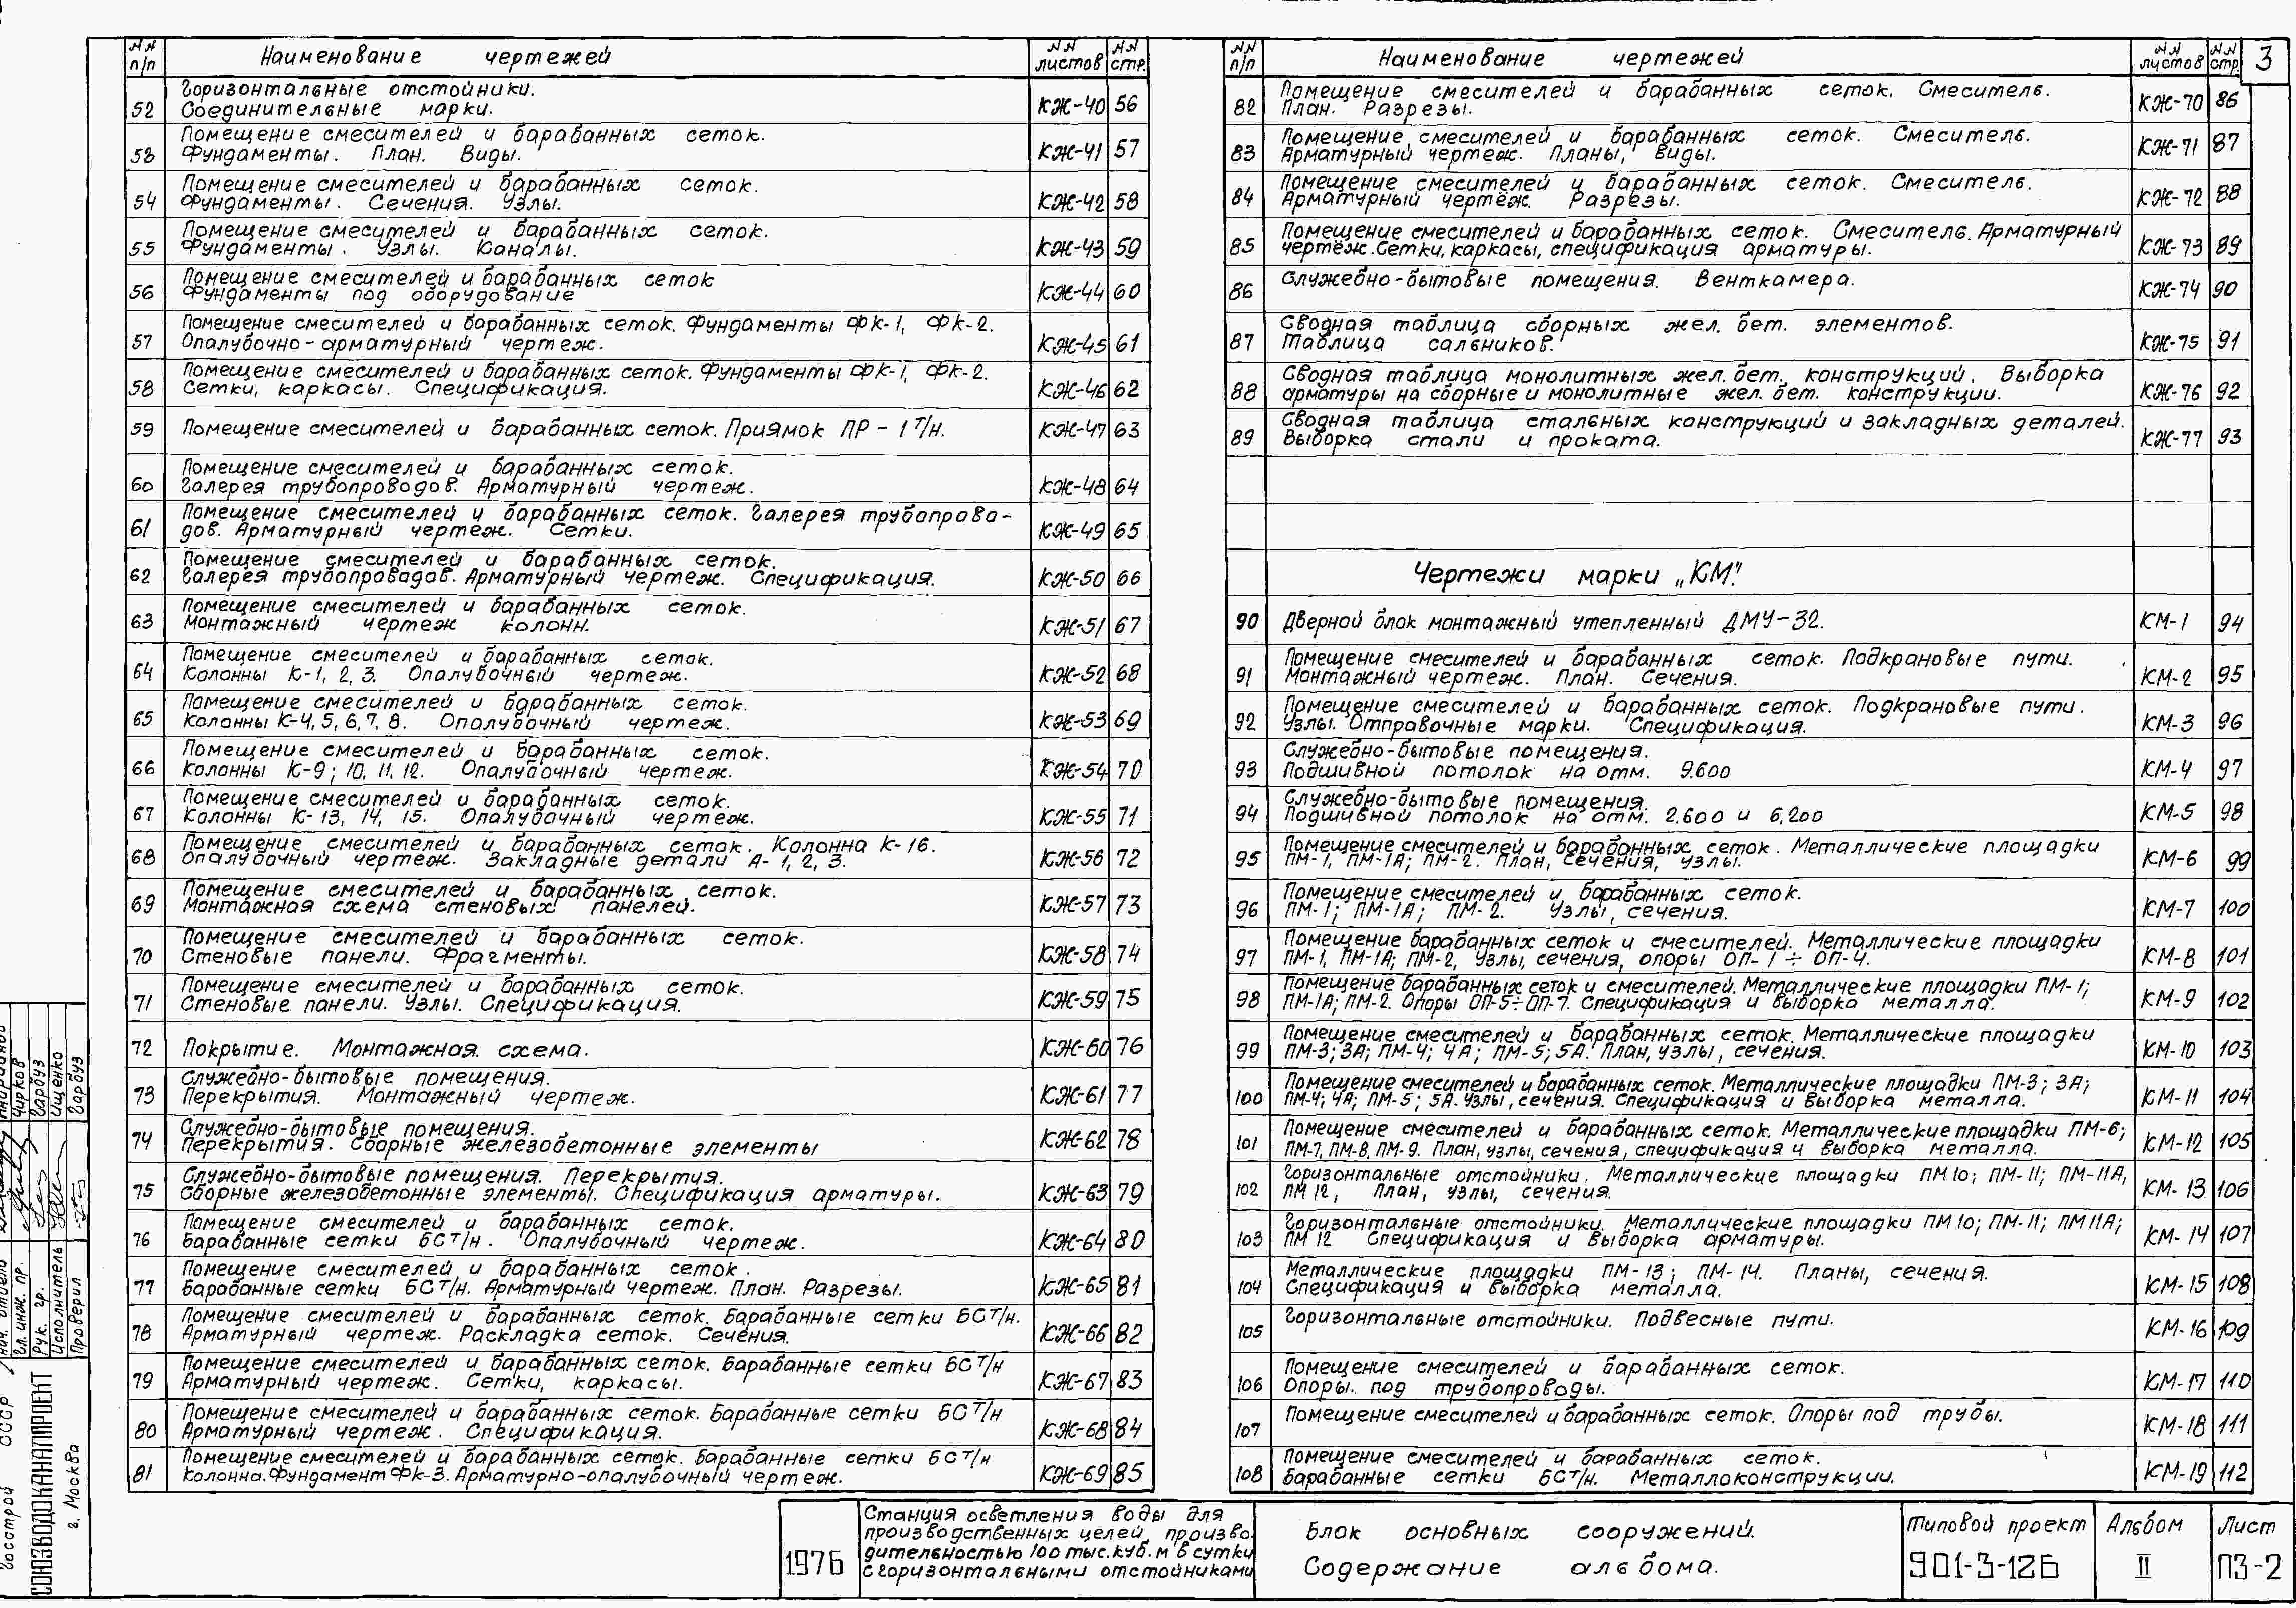 3
№№ п/п Наименование чертежей №№ листов №№ стр.
52 Горизонтальные отстойники.
Соединительные марки. КЖ-40 56
53 Помещение смесителей и барабанных сеток.
Фундаменты. План. Виды. КЖ-41 57
54 Помещение смесителей и барабанных сеток.
Фундаменты. Сечения. Узлы. КЖ-42 58
55 Помещение смесителей и барабанных сеток.
Фундаменты. Узлы. Каналы. КЖ-43 59
56 Помещение смесителей и барабанных сеток
Фундаменты под оборудование КЖ-44 60
57 Помещение смесителей и барабанных сеток. Фундаменты ФК-1, ФК-2.
Опалубочно-арматурный чертеж. КЖ-45 61
58 Помещение смесителей и барабанных сеток. Фундаменты ФК-1, ФК-2.
Сетки, каркасы. Спецификация. КЖ-46 62
59 Помещение смесителей и барабанных сеток. Приямок ПР-1 т/н. КЖ-47 63
60 Помещение смесителей и барабанных сеток.
Галерея трубопроводов. Арматурный чертеж. КЖ-48 64
61 Помещение смесителей и барабанных сеток. Галерея трубопрово-
дов. Арматурный чертеж. Сетки. КЖ-49 65
62 Помещение смесителей и барабанных сеток.
Галерея трубопроводов. Арматурный чертеж. Спецификация. КЖ-50 66
63 Помещение смесителей и барабанных сеток.
Монтажный чертеж колонн. КЖ-51 67
64 Помещение смесителей и барабанных сеток.
Колонны К-1, 2, 3. Опалубочный чертеж. КЖ-52 68
65 Помещение смесителей и барабанных сеток.
Колонны К-4, 5, 6, 7, 8. Опалубочный чертеж. КЖ-53 69
66 Помещение смесителей и барабанных сеток.
Колонны К-9; 10, 11, 12. Опалубочный чертеж. КЖ-54 70
67 Помещение смесителей и барабанных сеток.
Колонны К-13, 14, 15. Опалубочный чертеж. КЖ-55 71
68 Помещение смесителей и барабанных сеток. Колонна К-16.
Опалубочный чертеж. Закладные детали А-1, 2, 3. КЖ-56 72
69 Помещение смесителей и барабанных сеток.
Монтажная схема стеновых панелей. КЖ-57 73
70 Помещение смесителей и барабанных сеток.
Стеновые панели. Фрагменты. КЖ-58 74
71 Помещение смесителей и барабанных сеток.
Стеновые панели. Узлы. Спецификация. КЖ-59 75
72 Покрытие. Монтажная схема. КЖ-60 76
73 Служебно-бытовые помещения.
Перекрытия. Монтажный чертеж. КЖ-61 77
74 Служебно-бытовые помещения.
Перекрытия. Сборные железобетонные элементы КЖ-62 78
75 Служебно-бытовые помещения. Перекрытия.
Сборные железобетонные элементы. Спецификация арматуры. КЖ-63 79
76 Помещение смесителей и барабанных сеток.
Барабанные сетки БС т/н. Опалубочный чертеж. КЖ-64 80
77 Помещение смесителей и барабанных сеток.
Барабанные сетки БС т/н. Арматурный чертеж. План. Разрезы. КЖ-65 81
78 Помещение смесителей и барабанных сеток. Барабанные сетки БС т/н.
Арматурный чертеж. Раскладка сеток. Сечения. КЖ-66 82
79 Помещение смесителей и барабанных сеток. Барабанные сетки БС т/н
Арматурный чертеж. Сетки, каркасы. КЖ-67 83
80 Помещение смесителей и барабанных сеток. Барабанные сетки БС т/н
Арматурный чертеж. Спецификация. КЖ-68 84
81 Помещение смесителей и барабанных сеток. Барабанные сетки БС т/н
Колонна. Фундамент ФК-3. Арматурно-опалубочный чертеж. КЖ-69 85
№№ п/п Наименование чертежей №№ листов №№ стр.
82 Помещение смесителей и барабанных сеток. Смеситель.
План. Разрезы. КЖ-70 86
83 Помещение смесителей и барабанных сеток. Смеситель.
Арматурный чертеж. Планы, виды. КЖ-71 87
84 Помещение смесителей и барабанных сеток. Смеситель.
Арматурный чертёж. Разрезы. КЖ-72 88
85 Помещение смесителей и барабанных сеток. Смеситель. Арматурный
чертёж. Сетки, каркасы, спецификация арматуры. КЖ-73 89
86 Служебно-бытовые помещения. Венткамера. КЖ-74 90
87 Сводная таблица сборных жел. бет. элементов.
Таблица сальников. КЖ-75 91
88 Сводная таблица монолитных жел. бет. конструкций. Выборка
арматуры на сборные и монолитные жел. бет. конструкции. КЖ-76 92
89 Сводная таблица стальных конструкций и закладных деталей.
Выборка стали и проката. КЖ-77 93
Чертежи марки „КМ".
90 Дверной блок монтажный утепленный ДМУ-32. КМ-1 94
91 Помещение смесителей и барабанных сеток. Подкрановые пути.
Монтажный чертеж. План. Сечения. КМ-2 95
92 Помещение смесителей и барабанных сеток. Подкрановые пути.
Узлы. Отправочные марки. Спецификация. КМ-3 96
93 Служебно-бытовые помещения.
Подшивной потолок на отм. 9.600 КМ-4 97
94 Служебно-бытовые помещения.
Подшивной потолок на отм. 2.600 и 6.200 КМ-5 98
95 Помещение смесителей и барабанных сеток. Металлические площадки
ПМ-1, ПМ-1А; ПМ-2. План, сечения, узлы. КМ-6 99
96 Помещение смесителей и барабанных сеток.
ПМ-1; ПМ-1А; ПМ-2. Узлы, сечения. КМ-7 100
97 Помещение барабанных сеток и смесителей. Металлические площадки
ПМ-1, ПМ-1А; ПМ-2, Узлы, сечения, опоры ОП-1÷ОП-4. КМ-8 101
98 Помещение барабанных сеток и смесителей. Металлические площадки ПМ-1;
ПМ-1А; ПМ-2. Опоры ОП-5÷ОП-7. Спецификация и выборка металла. КМ-9 102
99 Помещение смесителей и барабанных сеток. Металлические площадки
ПМ-3; 3А; ПМ-4; 4А; ПМ-5; 5А. План, узлы, сечения. КМ-10 103
100 Помещение смесителей и барабанных сеток. Металлические площадки ПМ-3; 3А;
ПМ-4; 4А; ПМ-5; 5А. Узлы, сечения. Спецификация и выборка металла. КМ-11 104
101 Помещение смесителей и барабанных сеток. Металлические площадки ПМ-6;
ПМ-7, ПМ-8, ПМ-9. План, узлы, сечения, спецификация и выборка металла. КМ-12 105
102 Горизонтальные отстойники. Металлические площадки ПМ10; ПМ-11; ПМ-11А,
ПМ12, План, узлы, сечения. КМ-13 106
103 Горизонтальные отстойники. Металлические площадки ПМ10; ПМ-11; ПМ11А;
ПМ12 Спецификация и выборка арматуры. КМ-14 107
104 Металлические площадки ПМ-13; ПМ-14. Планы, сечения.
Спецификация и выборка металла. КМ-15 108
105 Горизонтальные отстойники. Подвесные пути. КМ-16 109
106 Помещение смесителей и барабанных сеток.
Опоры под трубопроводы. КМ-17 110
107 Помещение смесителей и барабанных сеток. Опоры под трубы. КМ-18 111
108 Помещение смесителей и барабанных сеток.
Барабанные сетки БС т/н. Металлоконструкции. КМ-19 112
1976
Станция осветления воды для
производственных целей, произво-
дительностью 100 тыс. куб. м в сутки
с горизонтальными отстойниками
Блок основных сооружений.
Содержание альбома.
Типовой проект
901-3-126
Альбом
II
Лист
ПЗ-2
Госстрой СССР
СОЮЗВОДОКАНАЛПРОЕКТ
г. Москва
Гл. инж. пр. Чирков
Рук. гр. Гарбуз
Исполнитель Ищенко
Проверил Гарбуз